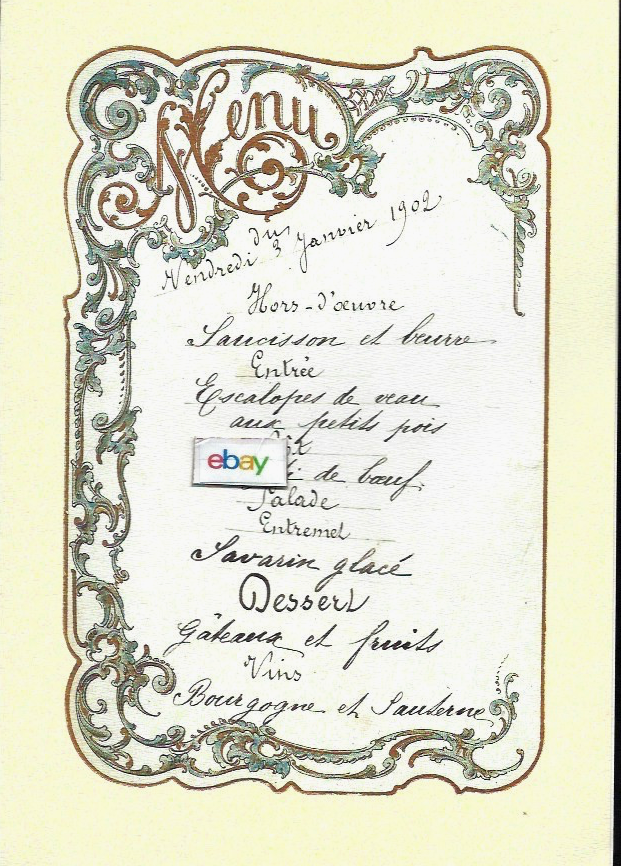 Menu
du
Vendredi 3 Janvier 1902
Hors-d'œuvre
Saucisson et beurre
Entrée
Escalopes de veau
aux petits pois
ebay
de bœuf
Salade
Entremet
Savarin glacé
Dessert
Gâteaux et fruits
Vins
Bourgogne et Sauterne